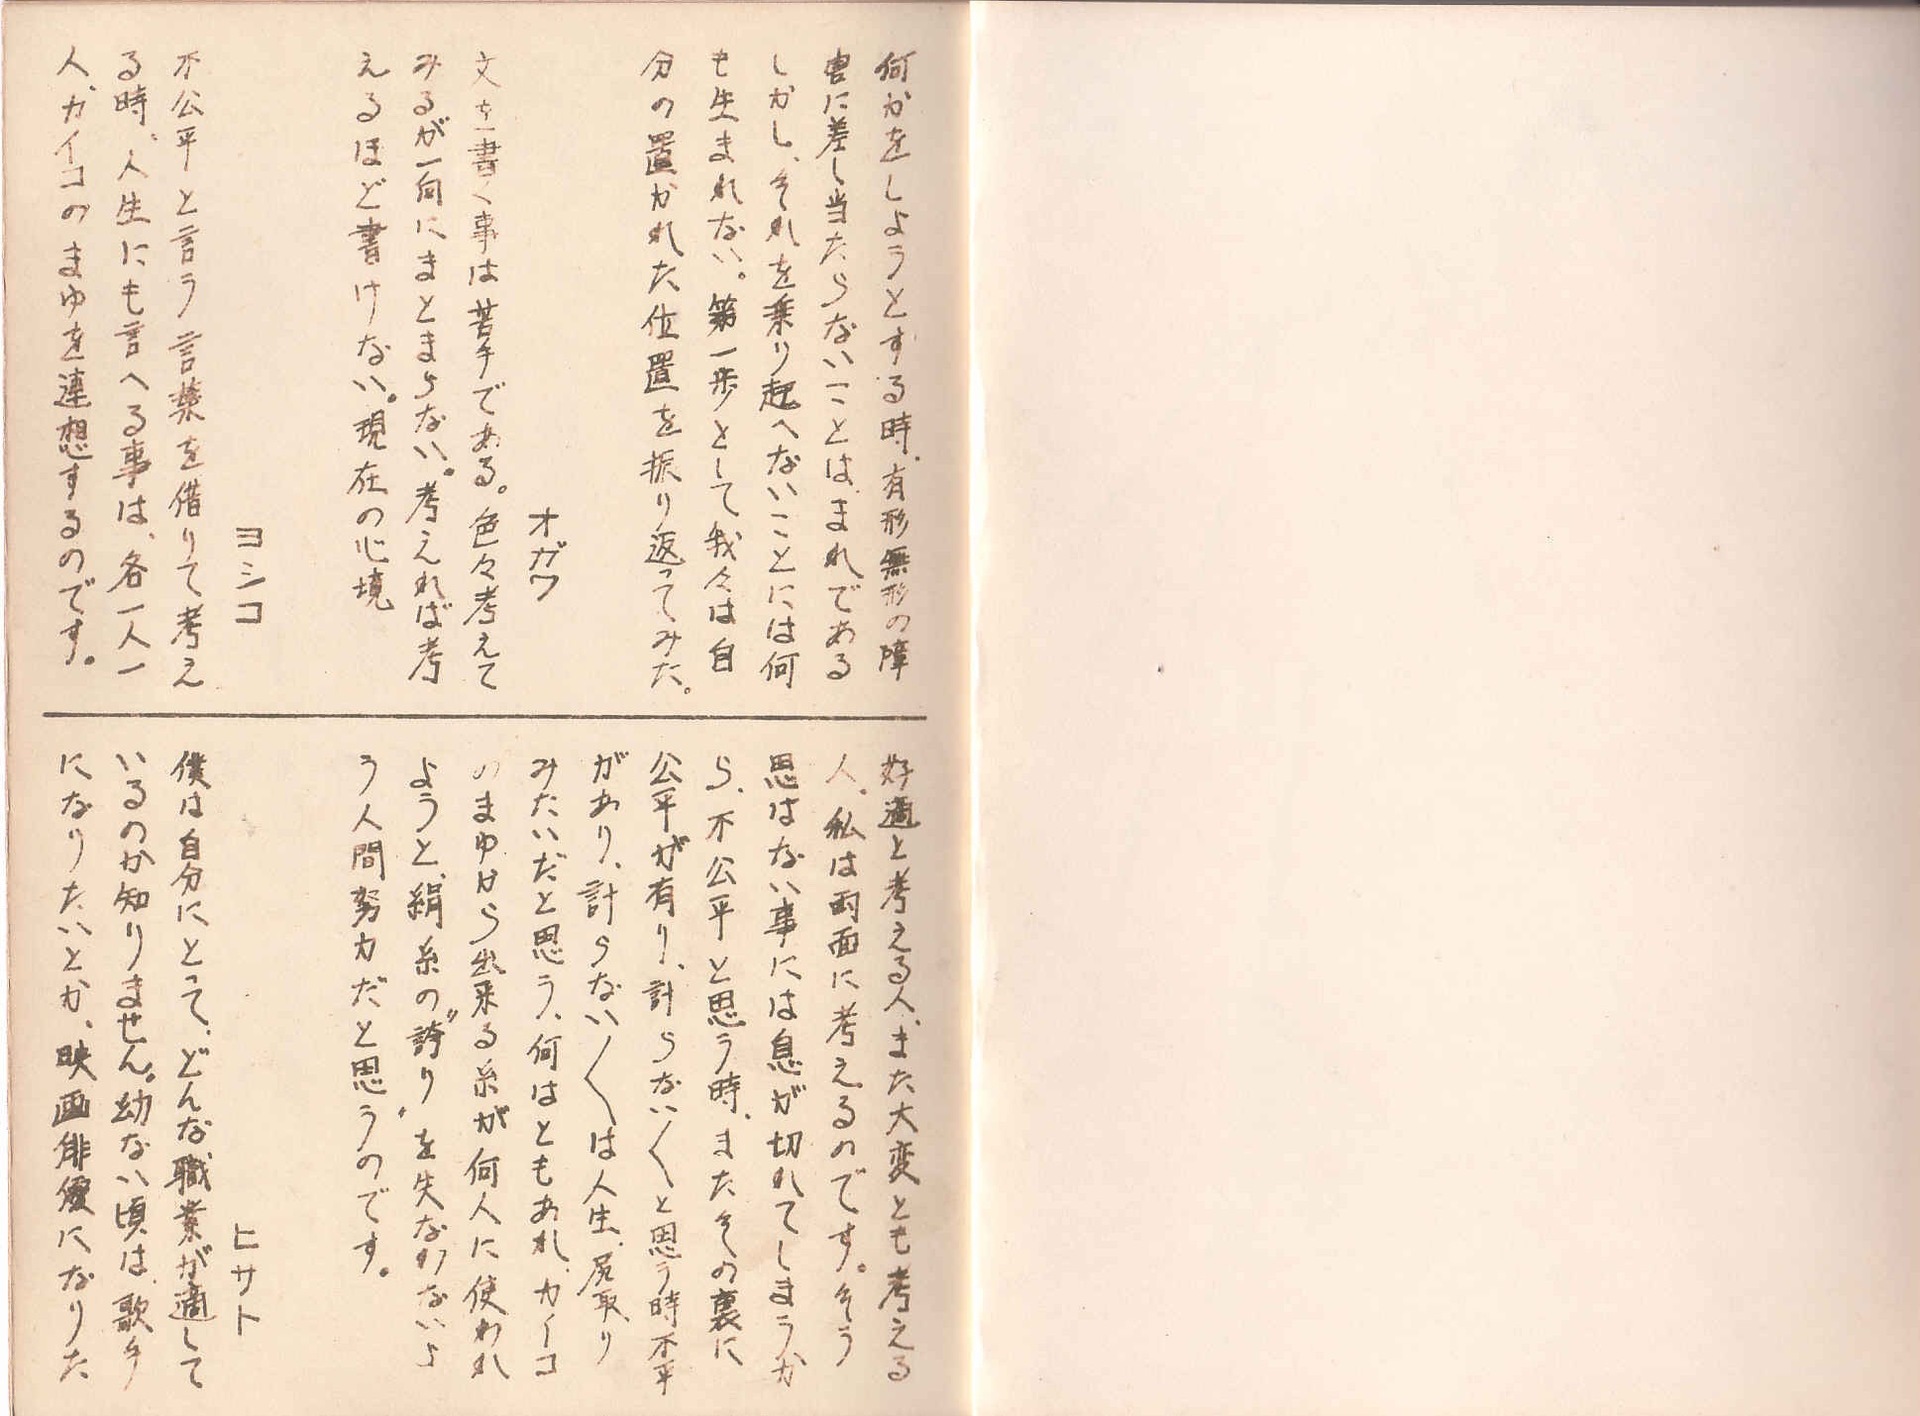 何かをしようとする時、有形無形の障
害に差し当たらないことはまれである
しかし、それを乗り起へないことには何
も生まれない。第一歩として我々は自
分の置かれた位置を振り返ってみた。
オガワ
文を書く事は苦手である。色々考えて
みるが一向にまとまらない。考えれば考
えるほど書けない。現在の心境
ヨシコ
不公平と言う言葉を借りて考え
る時、人生にも言へる事は、各一人一
人、カイコのまゆを連想するのです。
好適と考える人、また大変とも考える
人。私は両面に考えるのです。そう
思はない事には息が切れてしまうか
ら、不公平と思う時、またその裏に
公平が有り、計らない〱と思う時不平
があり、計らない〱は人生、尻取り
みたいだと思う、何はともあれ、カイコ
のまゆから出来る糸が何人に使われ
ようと、絹糸の〝誇り〟を失なわないよ
う人間努力だと思うのです。
ヒサト
僕は自分にとって、どんな職業が適して
いるのか知りません。幼ない頃は、歌手
になりたいとか、映画俳優になりた